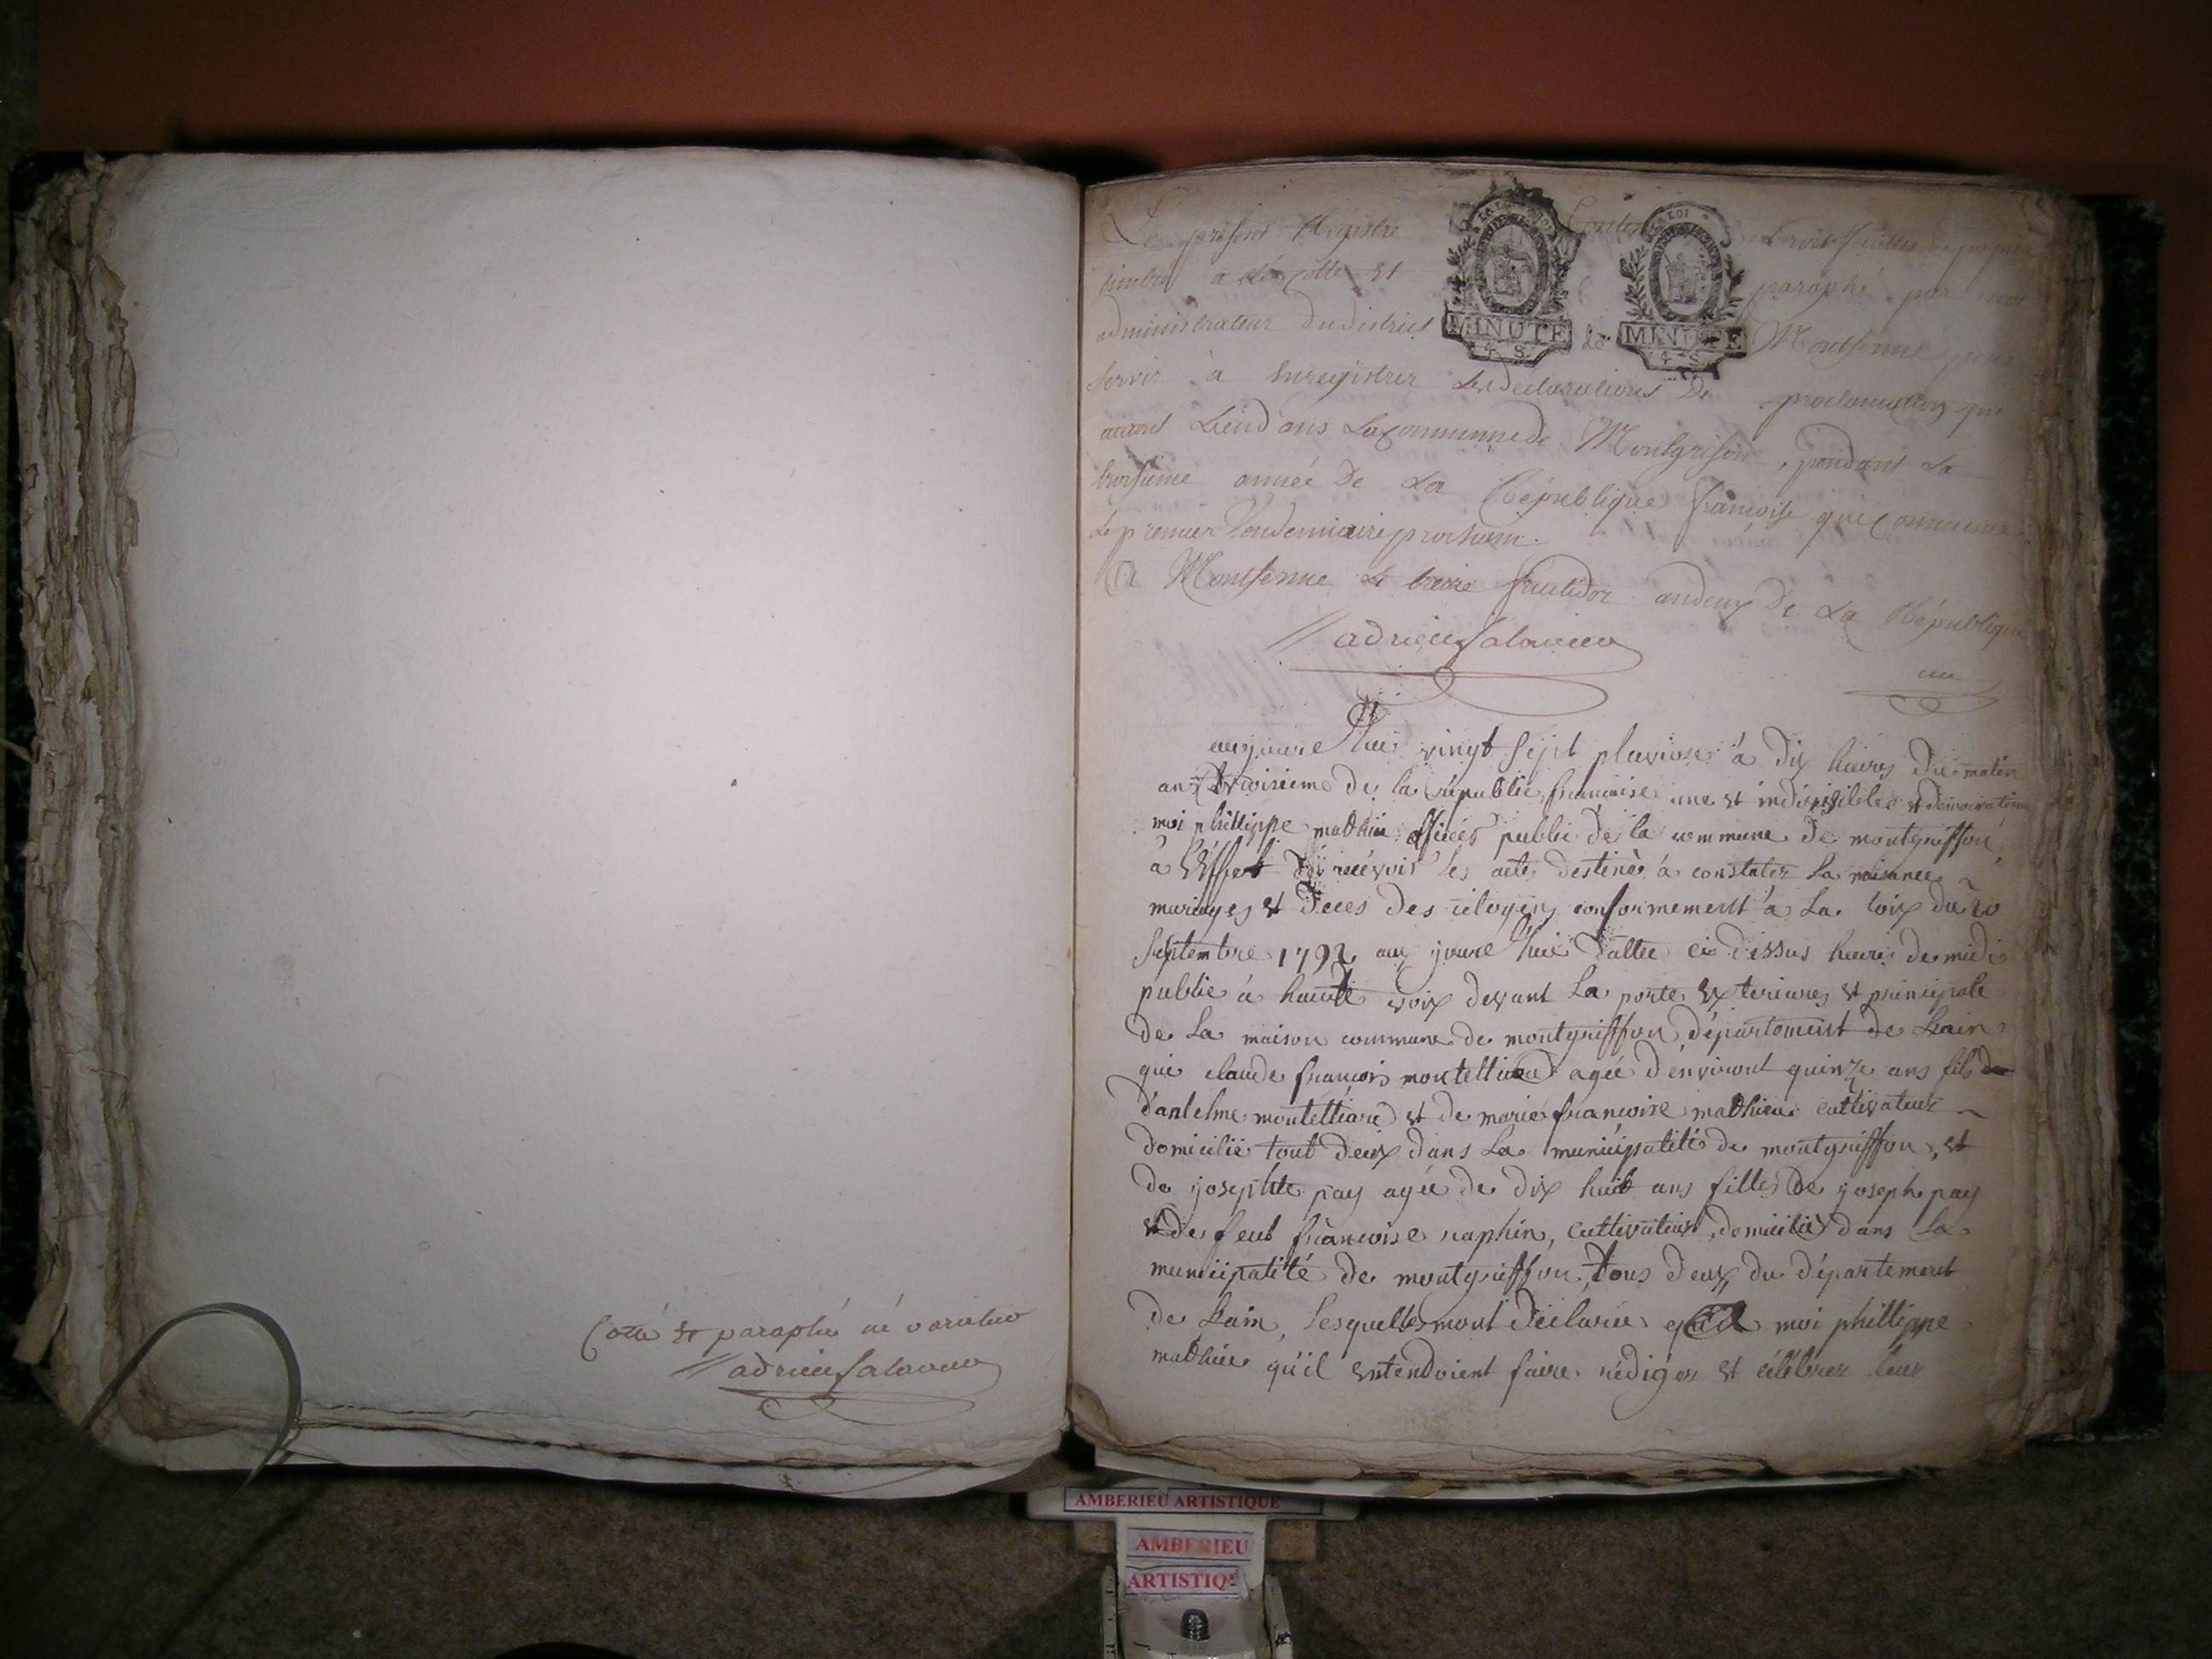 Cotté et paraphé ne varietur
adrien Salavieu
Le présent Registre Contenant trois feuilles de papier
timbré a été cotté et paraphé par moi
administrateur du district de Montferme pour
Servir à Enregistrer les declarations De proclamation qui
auront Lieu dans La Commune de Montgrifon, pendant La
troisieme année De La République françoise qui Commence
Le premier Vendemiaire prochain.
A Montferme Le treize fructidor an deux De La République
adrien Salavieu
un
aujourd hui vingt sept pluviose à dix heures du matin
an troisieme de la république francoise une et indivisible et democratique
moi phillippe mathieu officier public de la commune de montgriffon
à l'Effet de recevoir les actes destinés à constater La naisance
mariages et deces des citoyens conformement à La loix du 20
Septembre 1792 aujourd hui dattee ci dessus heure de midi
publie à hautte voix devant La porte Exterieure et principale
de La maison commune de montgriffon département de Lain
que claude francois montelliard agée d'environt quinze ans fils de
d'antelme montelliard et de marie francoise mathieu cultivateur
domicilie tout deux dans La municipalité de montgriffon, et
de josephte pay agée de dix huit ans fille de joseph pay
et de feut francoise raphin, cultivateur domicilié dans La
municipalité de montgriffon, tous deux du département
de Lain, Lesquelle mont déclarée moi phillippe
mathieu qu'il entendoient faire rédiger et célébrer leur
LA LOI
LA LOI
MINUTE
4 S.
MINUTE
4 S.
AMBERIEU ARTISTIQUE
AMBERIEU
ARTISTIQUE